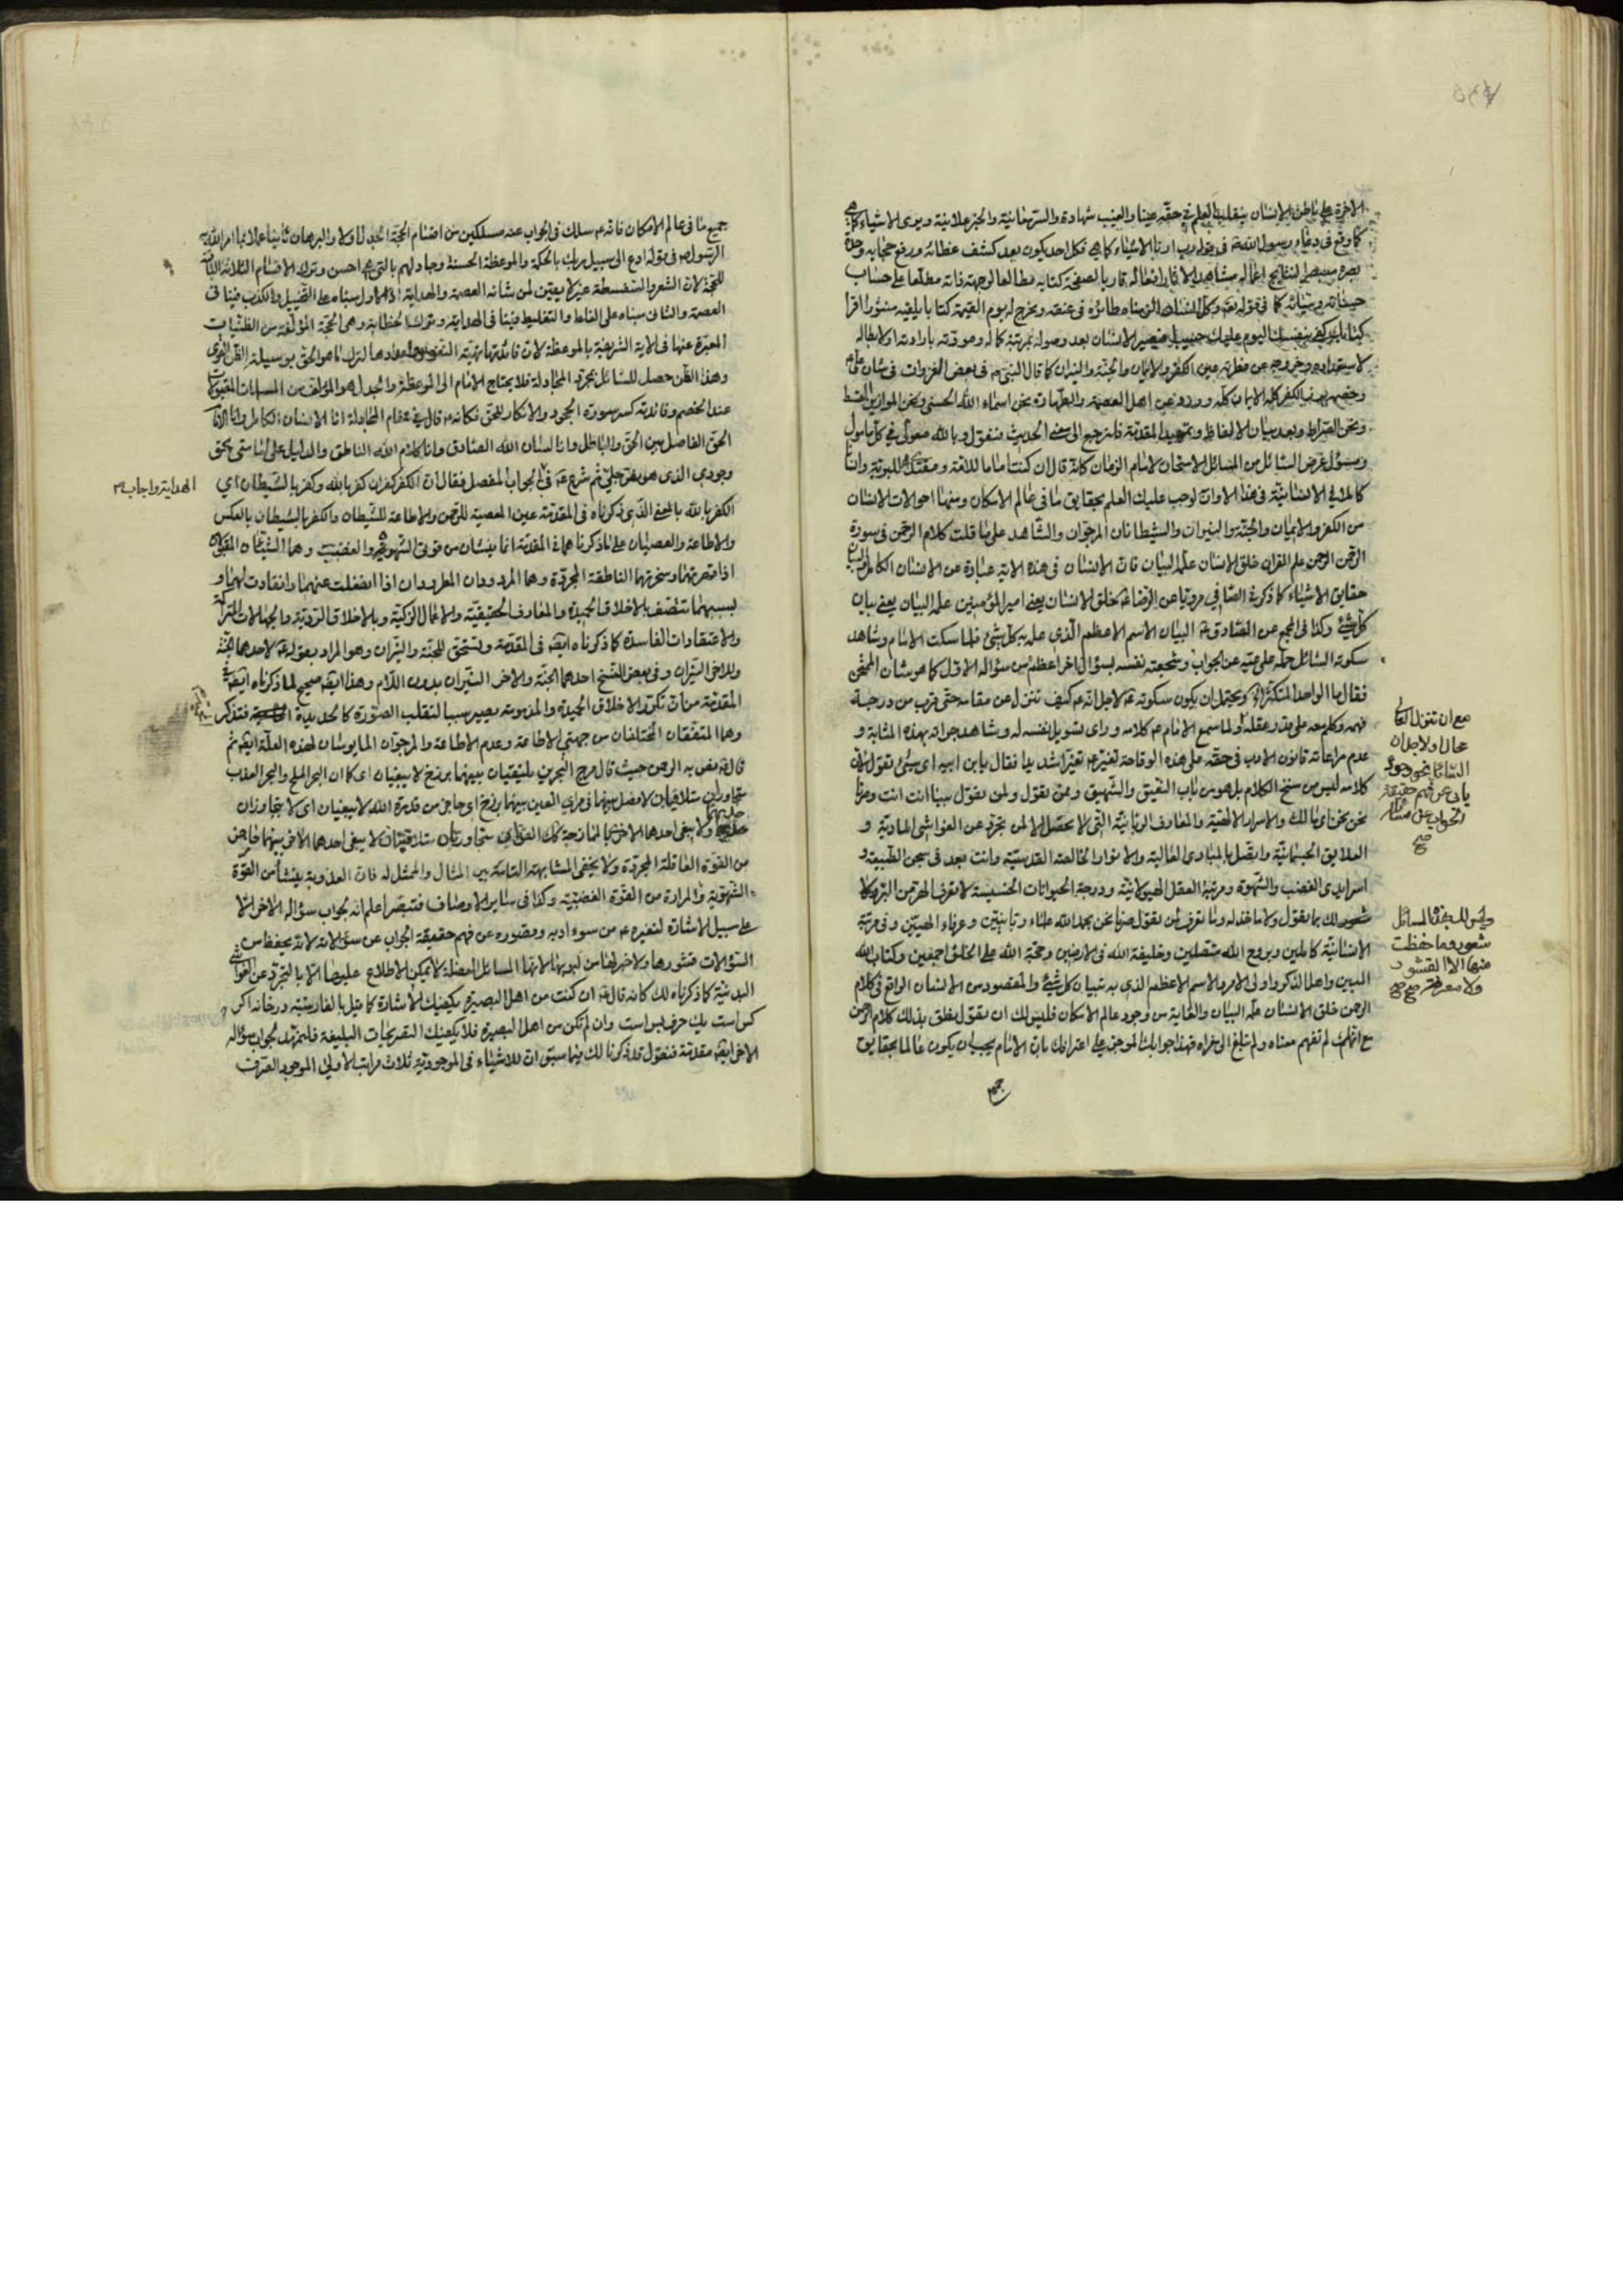 الاخرة على باطن الانسان ينقلب العلم فى حقه عينا والغيب شهادة والسر معاينة والخبر علانية ويرى الاشياء كما هى
كما وقع فى دعاء رسول الله فى قوله رب ارنا الاشياء كما هى فكل احد يكون بعد كشف غطائه ورفع حجابه وحدة
بصره مبصرا لنتايج اعماله مشاهدا لاثار افعاله قاريا لصفحة كتابه مطالعا لوجهة ذاته مطلعا على حساب
حسناته وسيئاته كما فى قوله تعالى وكل انسان الزمناه طائره فى عنقه ونخرج له يوم القيمة كتابا يلقيه منشورا اقرا
كتابك كفى بنفسك اليوم عليك حسيبا فيصير الانسان بعد وصوله بمرتبة كماله وموته بارادته او لابطاله
لاستعداده وخروجه عن فطرته عين الكفر والايمان والجنة والنيران كما قال النبى فى بعض الغزوات فى شان على
وخصمه برز الكفر كله الايمان كله وورد عن اهل العصمة والطهارة نحن اسماء الله الحسنى ونحن الموازين القسط
ونحن الصراط وبعد بيان الالفاظ وتمهيد المقدمة فلنرجع الى معنى الحديث فنقول وبالله معولى فى كل مامول
ومسؤل غرض السائل من المسائل الاستحان لامام الزمان كانه قال ان كنت اماما للامة ومقتدى للبرية وانسانا
كاملا فى الانسانية فى هذا الاوان لوجب عليك العلم بحقايق ما فى عالم الامكان ومنها احوالات الانسان
من الكفر والايمان والجنة والنيران والشيطانان المرجوان والشاهد على ما قلت كلام الرحمن فى سورة
الرحمن الرحمن علم القران خلق الانسان علمه البيان فان الانسان فى هذه الاية عبارة عن الانسان الكامل والبيان
حقايق الاشياء كما ذكره الصافى مرويا عن الرضا خلق الانسان يعنى امير المؤمنين علمه البيان يعنى بيان
كل شئ وكذا فى المجمع عن الصادق البيان الاسم الاعظم الذى علم به كل شئ فلما سكت الامام وشاهد
سكوته السائل حمله على عيه عن الجواب وشجعته نفسه بسؤال اخر اعظم من سؤاله الاول كما هو شان الممتحن
فقال ما الواحد المتكثر ويحتمل ان يكون سكوته لاجل انه كيف تنزل عن مقامه حتى قرب من درجة
فهمه وكلم معه على قدر عقله ولما سمع الامام كلامه وراى تسويل نفسه له وشاهد جراته بهذه المثابة و
عدم مراعاته قانون الادب فى حقه على هذه الوقاحة تغير تغيرا شديدا فقال يابن ابيه اى شئ تقول فان
كلامه ليس من سنخ الكلام بل هو من باب النعيق والشهيق وممن تقول ولمن تقول بينا انت انت وصرنا
نحن نحن اى مالك والاسرار الالهية والمعارف الربانية التى لا يحصل الا لمن تجرد عن الغواشى المادية و
العلايق الجسمانية واتصل بالمبادى العالية والانوار الخالصة القدسية وانت بعد فى سجن الطبيعة و
اسر ايدى الغضب والشهوة ومرتبة العقل الهيولانية ودرجة الحيوانات الخسيسة لا تعرف الهر من البر ولا
شعور لك بما تقول ولا ما خذله وما تعرف لمن تقول صرنا نحن بحمد الله علماء ربانيين وعرفاء الهيين وفى مرتبة
الانسانية كاملين وبروح الله متصلين وخليفة الله فى الارضين وحجة الله على الخلق اجمعين وكتاب الله
المبين واهل الذكر واولى الامر والاسم الاعظم الذى به تبيان كل شئ والمقصود من الانسان الواقع فى كلام
الرحمن خلق الانسان علمه البيان والغاية من وجود عالم الامكان فليس لك ان تقول بغلق بذلك كلام الرحمن
مع انك لم تفهم معناه ولم تبلغ الى مغزاه فهذا جوابك الموجز على اعترافك بان الامام يجب ان يكون عالما بحقايق
جميع
مع ان تنزل العالى
محال ولاجل ان
وليس للحفظ المسائل
شعور وما حفظت
منها الا القشور
ولا معرفة صح
جميع ما فى عالم الامكان فانه سلك فى الجواب عنه مسلكين من اقسام الحجة الجدل اولا والبرهان ثانيا عملا بما امر الله به
الرسول فى قوله ادع الى سبيل ربك بالحكمة والموعظة الحسنة وجادلهم بالتى هى احسن وترك الاقسام الثلاثة الباقية
للحجة لان الشعر والسفسطة غير لا يعتين لمن شانه العصمة والهداية اذ الاول مبناه على التخييل والكذب فينافى
العصمة والثانى مبناه على الغلط والتغليط فينافى الهداية وترك الخطابة وهى الحجة المؤلفة من الظنيات
المعبرة عنها فى الاية الشريفة بالموعظة لان فائدتها تهيئة النفوس لترك ما هو الحق بوسيلة الظن القوى
وهذا الظن حصل للسائل بمجرد المجادلة فلا يحتاج الامام الى الموعظة والجدل هو المؤلف من المسلمات المقبولات
عند الخصم وفائدته كسر سورة الجحود والانكار للحق فكانه قال فى مقام المجادلة انا الانسان الكامل وانا الامام
الحق الفاصل بين الحق والباطل وانا لسان الله الصادق وانا كلام الله الناطق والدليل على اناستى بحق
وجودى الذى هو بعض جلى ثم شرع فى الجواب المفصل فقال ان الكفر كفران كفر بالله وكفر بالشيطان اى
الكفر بالله بالمعنى الذى ذكرناه فى المقدمة عين المعصية للرحمن والاطاعة للشيطان والكفر بالشيطان بالعكس
والاطاعة والعصيان على ما ذكرناهما فى المقدمة انما ينشان من قوتى الشهوية والغضبية وهما الشيئان المقبولان
اذا قهرتهما وسخرتهما الناطقة المجردة وهما المردودان المطرودان اذا انفعلت عنهما وانقادت لهما و
بسببهما تتصف بالاخلاق الحميدة والمعارف الحقيقية والاعمال الزكية وبالاخلاق الردية والجهالات المتراكمة
والاعتقادات الفاسدة كما ذكرناه ايضا فى المقدمة وتستحق للجنة والنيران وهو المراد بقوله لاحدهما الجنة
وللاخر النيران وفى بعض النسخ احدهما الجنة والاخر النيران بدون اللام وهذا ايضا صحيح لما ذكرناه ايضا فى
المقدمة من ان تكرر الاخلاق الحميدة والمذمومة يصير سببا لتقلب الصورة كالحديدة فتذكر
وهما المتفقان المختلفان من جهتى الاطاعة وعدم الاطاعة والمرجوان المايوسان لهذه العلة ايضا ثم
قال نص به الرحمن حيث قال مرج البحرين يلتقيان بينهما برزخ لا يبغيان اى كما ان البحر الملح والبحر العذب
متجاوران متلاقيان لا فصل بينهما فى مراى العين بينهما برزخ اى حاجز من قدرة الله لا يبغيان اى لا يتجاوزان
حديهما ولا يبغى احدهما الاخر بالممازجة كذلك القوتان متجاورتان متلاقيتان لا يبغى احدهما الاخر بينهما حاجز
من القوة العاقلة المجردة ولا يخفى المشابهة التامة بين المثال والممثل له فان العذوبة ينشا من القوة
الشهوية والمرارة من القوة الغضبية وكذا فى ساير الاوصاف فتبصر اعلم انه بجواب سؤاله الاخر الا
على سبيل الاشارة لتغيره من سوء ادبه وقصوره عن فهم حقيقة الجواب عن سؤالاته لانه يحفظ من
السؤالات قشورها ولا خبر لها من لبوبها لانها المسائل المعضلة لا يمكن الاطلاع عليها الا بالتجرد عن الغواشى
البدنية كما ذكرناه لك كانه قال ان كنت من اهل البصيرة يكفيك الاشارة كما قيل بالفارسية درخانه اكر
كس است يك حرف بس است وان لم تكن من اهل البصيرة فلا يكفيك التصريحات البليغة فلنمهد لجواب سؤاله
الاخر ايضا مقدمة فنقول قد ذكرنا لك فيما سبق ان للاشياء فى الموجودية ثلاث مراتب الاولى الموجود الصرف
الهداية واجاب